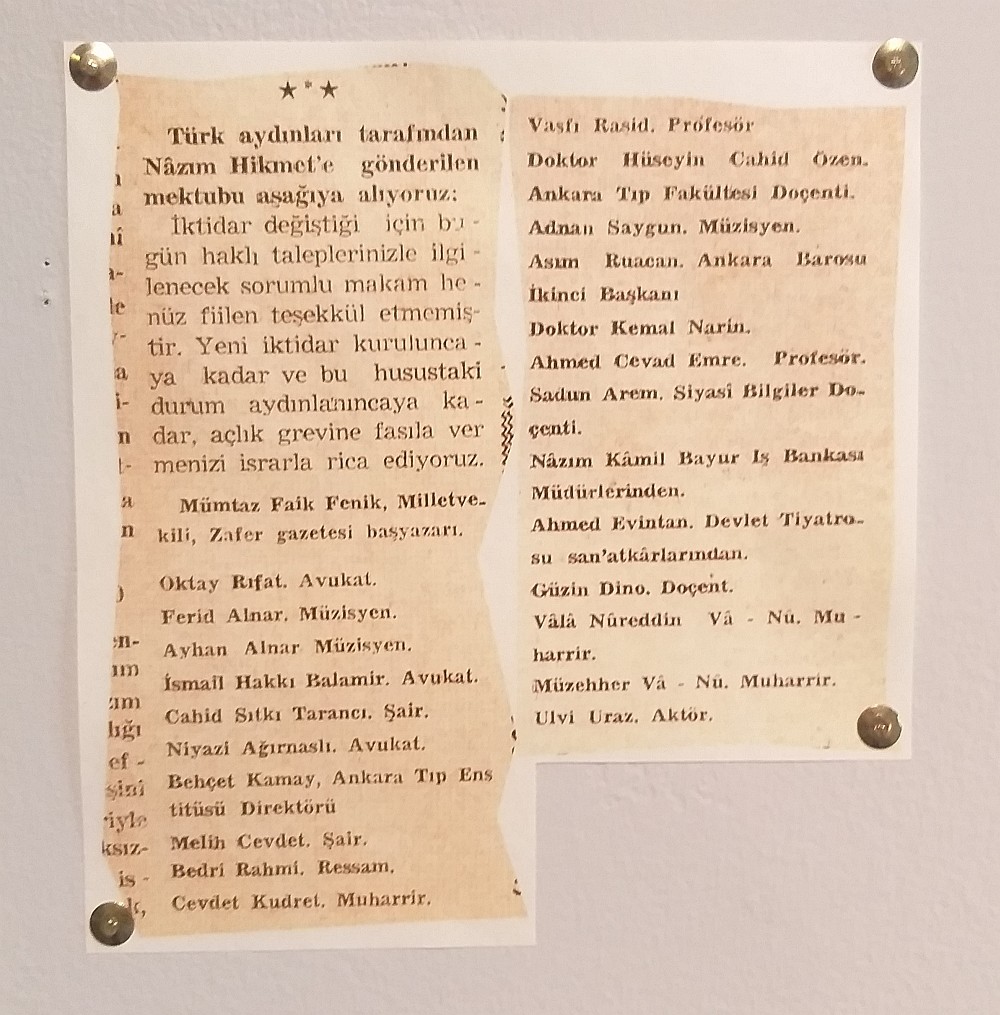 Türk aydınları tarafından
Nâzım Hikmet'e gönderilen
mektubu aşağıya alıyoruz:
İktidar değiştiği için bu-
gün haklı taleplerinizle ilgi-
lenecek sorumlu makam he-
nüz fiilen teşekkül etmemiş-
tir. Yeni iktidar kurulunca-
ya kadar ve bu husustaki
durum aydınlanıncaya ka-
dar, açlık grevine fasıla ver
menizi israrla rica ediyoruz.
Mümtaz Faik Fenik, Milletve-
kili, Zafer gazetesi başyazarı.
Oktay Rıfat. Avukat.
Ferid Alnar. Müzisyen.
Ayhan Alnar Müzisyen.
İsmail Hakkı Balamir. Avukat.
Cahid Sıtkı Tarancı. Şair.
Niyazi Ağırnaslı. Avukat.
Behçet Kamay, Ankara Tıp Ens
titüsü Direktörü
Melih Cevdet. Şair.
Bedri Rahmi. Ressam.
Cevdet Kudret. Muharrir.
Vasfı Rasid. Profesör
Doktor Hüseyin Cahid Özen.
Ankara Tıp Fakültesi Doçenti.
Adnan Saygun. Müzisyen.
Asım Ruacan. Ankara Barosu
İkinci Başkanı
Doktor Kemal Narin.
Ahmed Cevad Emre. Profesör.
Sadun Arem. Siyasî Bilgiler Do-
çenti.
Nâzım Kâmil Bayur İş Bankası
Müdürlerinden.
Ahmed Evintan. Devlet Tiyatro-
su san'atkârlarından.
Güzin Dino. Doçent.
Vâlâ Nûreddin Vâ - Nû. Mu-
harrir.
Müzehher Vâ - Nû. Muharrir.
Ulvi Uraz. Aktör.